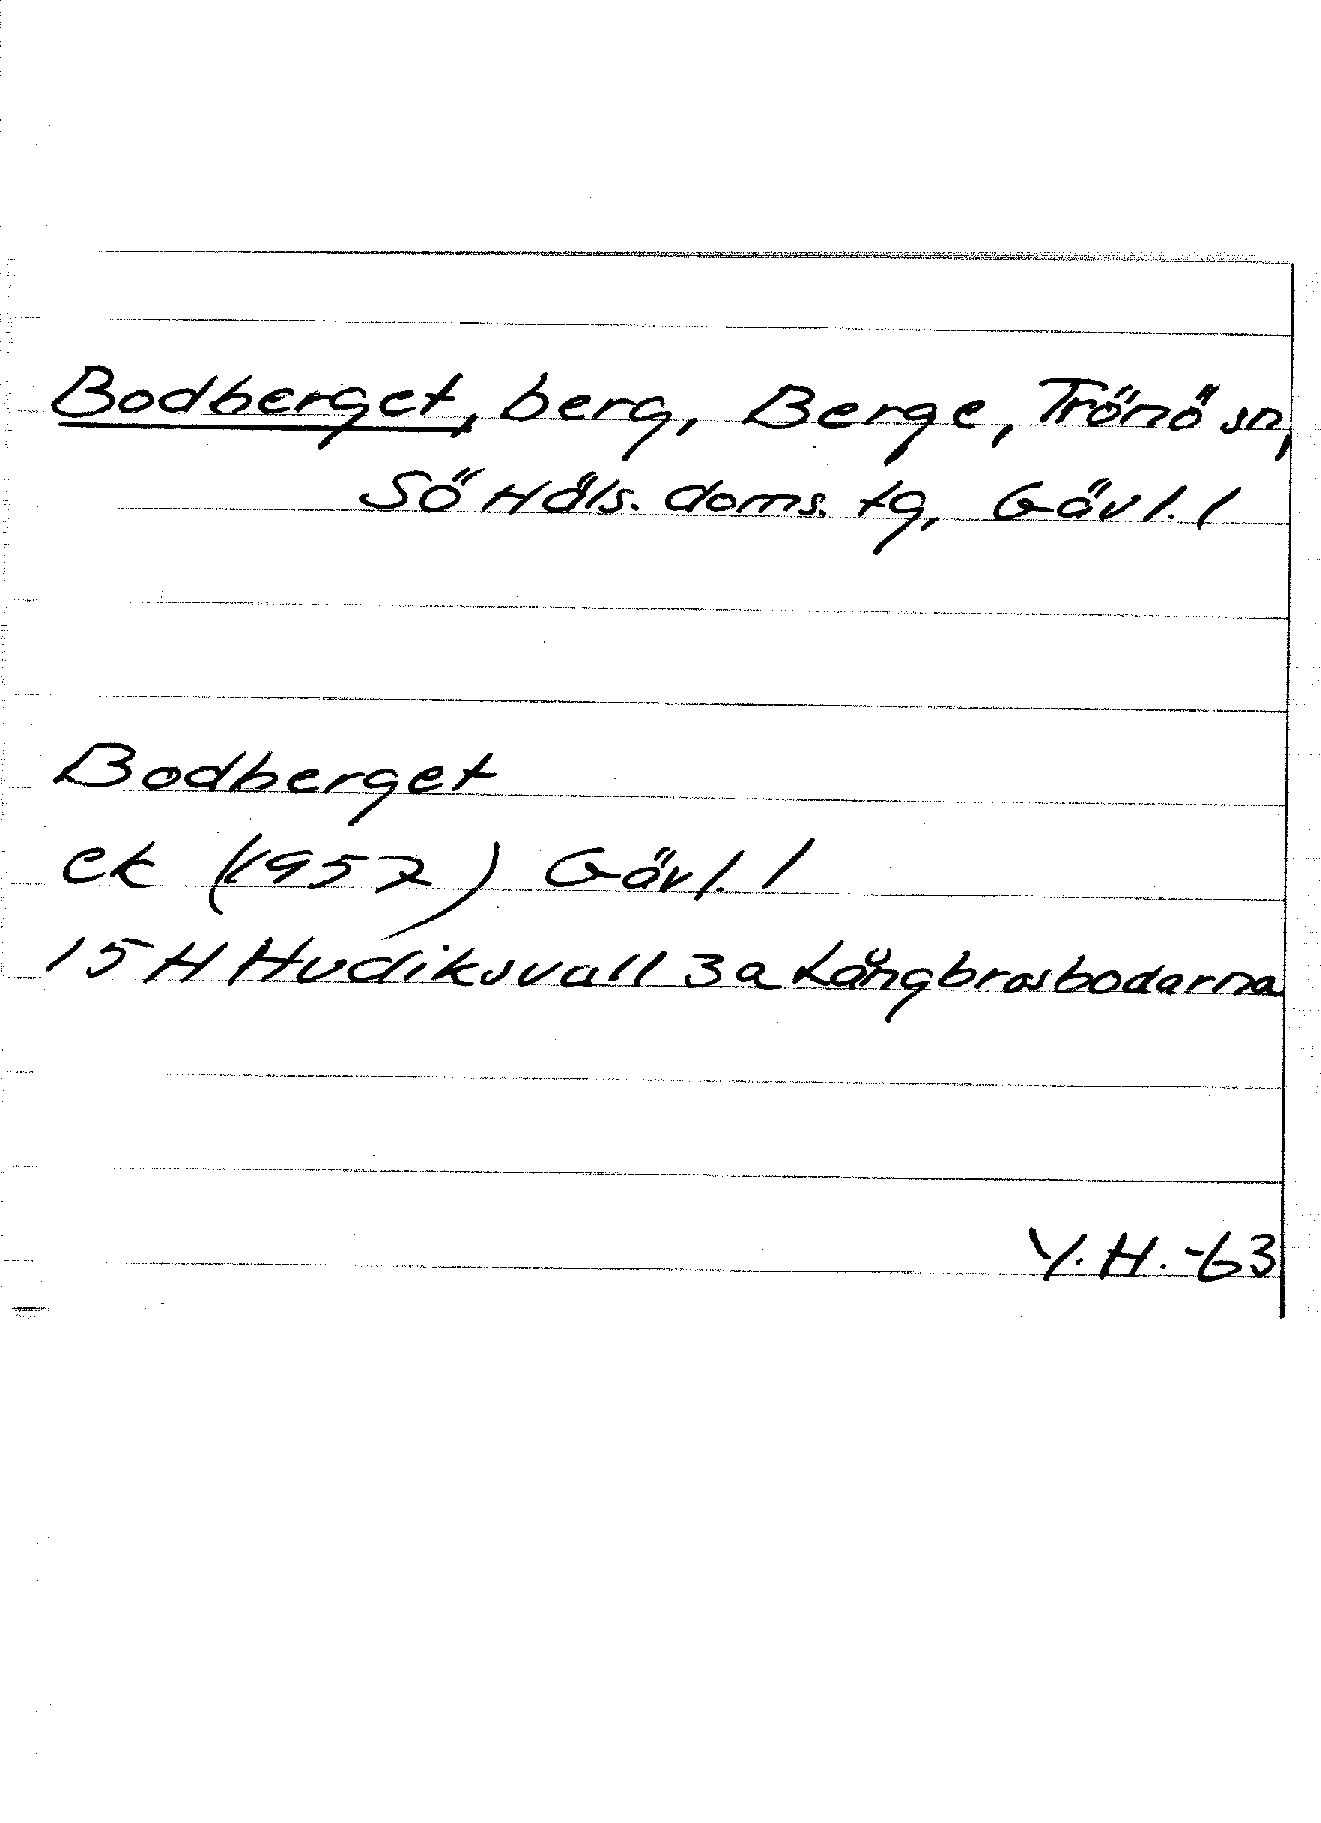 Bodberget, berg, Berge, Trönö sn,
Sö Häls. doms. tg, Gävl. l
Bodberget
ek (1957) Gävl. l
15 H Hudiksvall 3a Långbrosbodarna
Y.H.-63